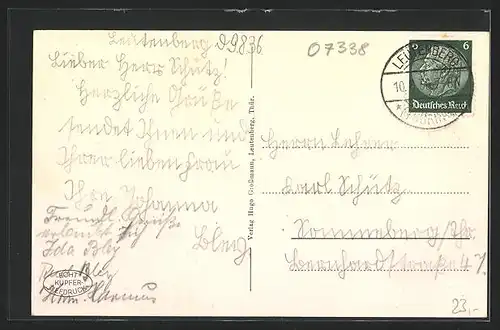 Leutenberg d 9.8.36.
Lieber Herr Schütz!
Herzliche Grüße
sendet Ihnen und
Ihrer lieben Frau
Ihre Johanna
Bley
Freundl. Grüße
erlaubt sich
Ida Bley
Bley
ECHT
KUPFER-
TIEFDRUCK
Verlag Hugo Großmann, Leutenberg, Thür.
07338
LEUTENBERG
10.
6 6
Deutsches Reich
Herrn Lehrer
Karl Schütz
Sonneberg/Thr.
Bernhardstraße 47.
23,-